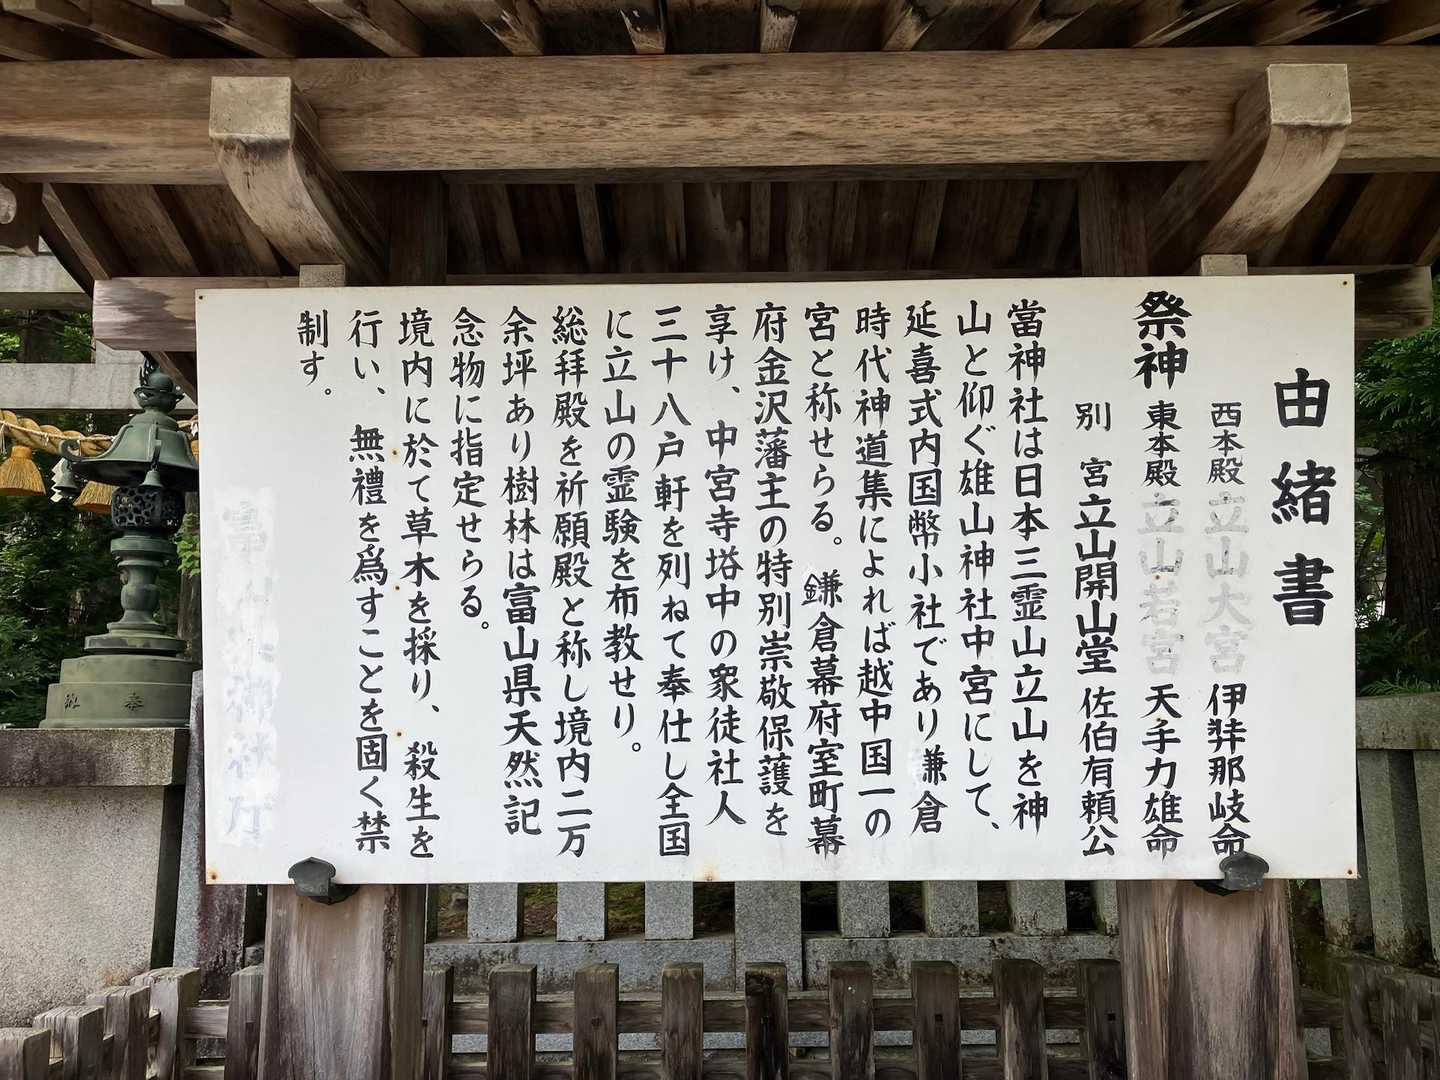 由緒書
祭神
西本殿 立山大宮 伊弉那岐命
東本殿 立山若宮 天手力雄命
別宮 立山開山堂 佐伯有頼公
當神社は日本三霊山立山を神
山と仰ぐ雄山神社中宮にして、
延喜式内国幣小社であり鎌倉
時代神道集によれば越中国一の
宮と称せらる。鎌倉幕府室町幕
府金沢藩主の特別崇敬保護を
享け、中宮寺塔中の衆徒社人
三十八戸軒を列ねて奉仕し全国
に立山の霊験を布教せり。
総拝殿を祈願殿と称し境内二万
余坪あり樹林は富山県天然記
念物に指定せらる。
境内に於て草木を採り、殺生を
行い、無禮を爲すことを固く禁
制す。
奉